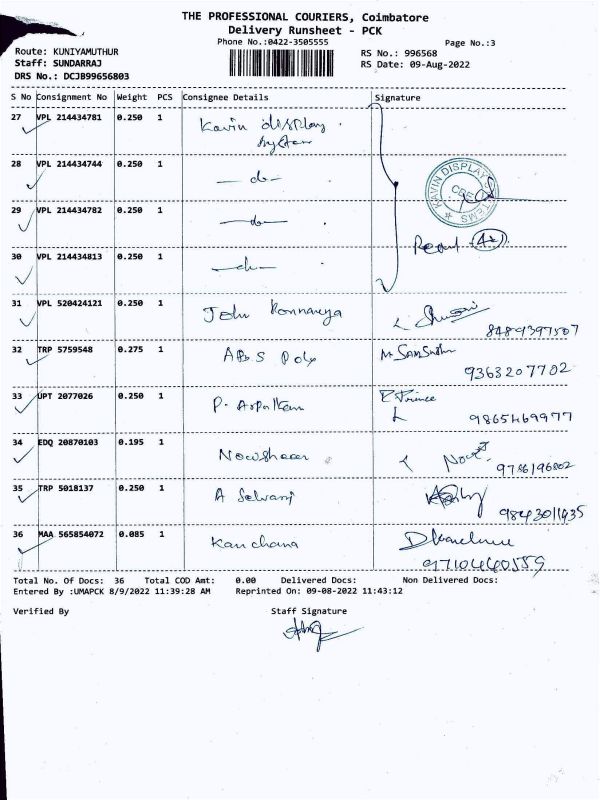 THE PROFESSIONAL COURIERS, Coimbatore
Delivery Runsheet - PCK
Phone No.:0422-3505555
Page No.:3
Route: KUNIYAMUTHUR
RS No.: 996568
Staff: SUNDARRAJ
RS Date: 09-Aug-2022
DRS No.: DCJB99656803
S No Consignment No Weight PCS Consignee Details Signature
27 VPL 214434781 0.250 1 Kavin display
system
28 VPL 214434744 0.250 1 —do—
KAVIN DISPLAY SYSTEMS
29 VPL 214434782 0.250 1 —do—
30 VPL 214434813 0.250 1 —do—
31 VPL 520424121 0.250 1 John
8489397507
32 TRP 5759548 0.275 1
9363207702
33 UPT 2077026 0.250 1 P.
9865469977
34 EDQ 20870103 0.195 1
9786196802
35 TRP 5018137 0.250 1 A Selvaraj
9843011435
36 MAA 565854072 0.085 1 Kanchana
9710440559
Total No. Of Docs: 36 Total COD Amt: 0.00 Delivered Docs: Non Delivered Docs:
Entered By :UMAPCK 8/9/2022 11:39:28 AM Reprinted On: 09-08-2022 11:43:12
Verified By Staff Signature